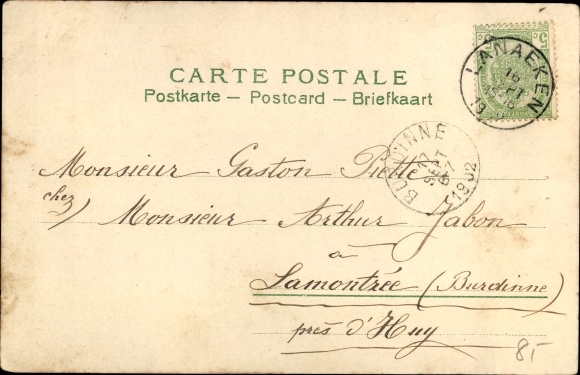 CARTE POSTALE
Postkarte — Postcard — Briefkaart
5
LANAEKEN
16
SEPT
19
BURDINNE
17
SEPT
1902
Monsieur Gaston Piette
chez Monsieur Arthur Jabon
à
Lamontzée (Burdinne)
près d'Huy
8,-